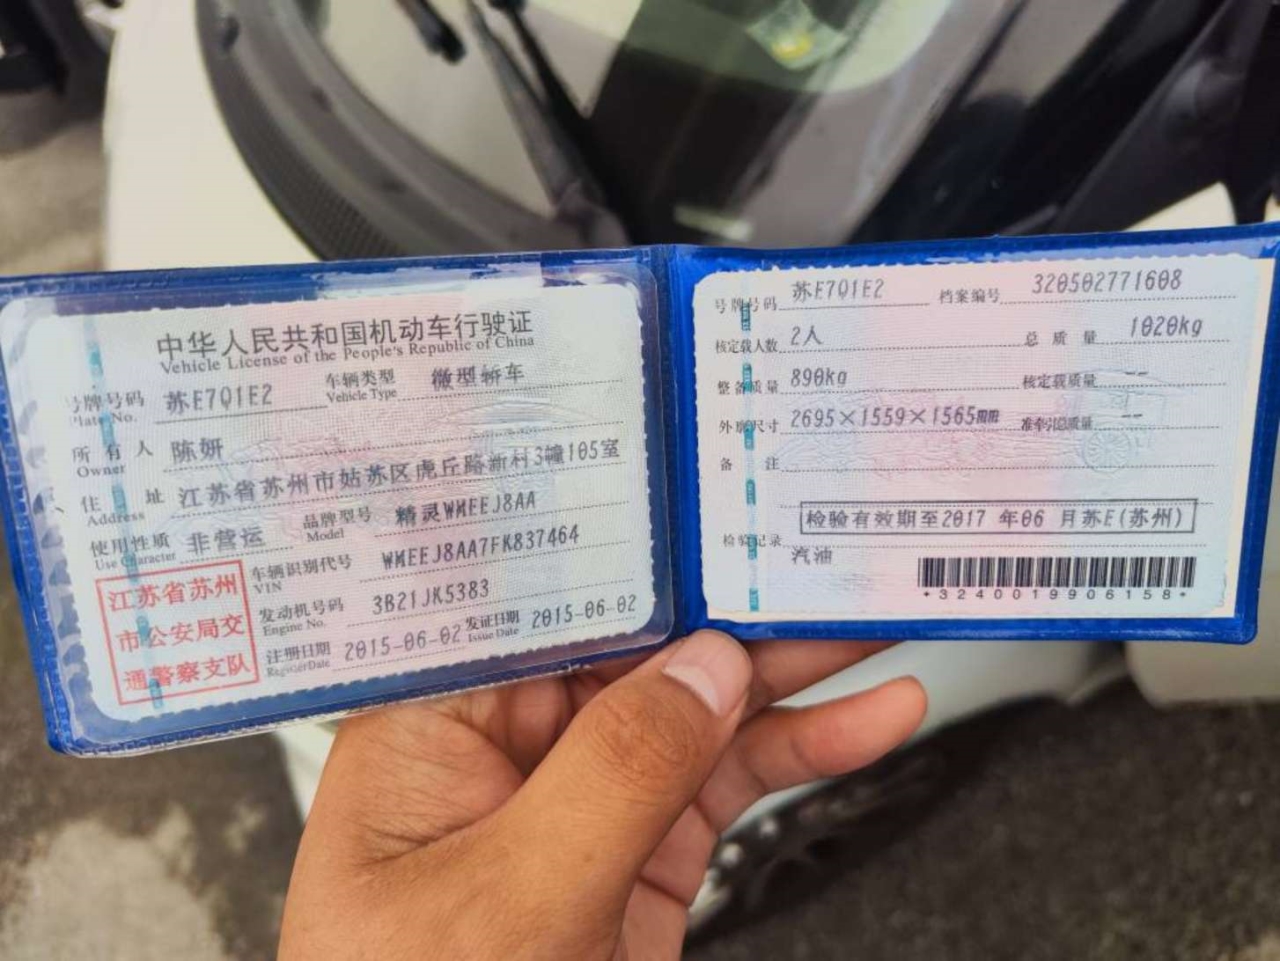 中华人民共和国机动车行驶证
Vehicle License of the People's Republic of China
号牌号码 苏E7Q1E2 车辆类型 微型轿车
Plate No. Vehicle Type
所有人 陈妍
Owner
住址 江苏省苏州市姑苏区虎丘路新村3幢105室
Address
使用性质 非营运 品牌型号 精灵WMEEJ8AA
Use Character Model
车辆识别代号 WMEEJ8AA7FK837464
VIN
发动机号码 3B21JK5383
Engine No.
注册日期 2015-06-02 发证日期 2015-06-02
Register Date Issue Date
江苏省苏州
市公安局交
通警察支队
号牌号码 苏E7Q1E2 档案编号 320502771608
核定载人数 2人 总质量 1020kg
整备质量 890kg 核定载质量 --
外廓尺寸 2695×1559×1565mm 准牵引总质量 --
备注
检验有效期至2017 年06 月苏E(苏州)
检验记录
汽油
*3240019906158*